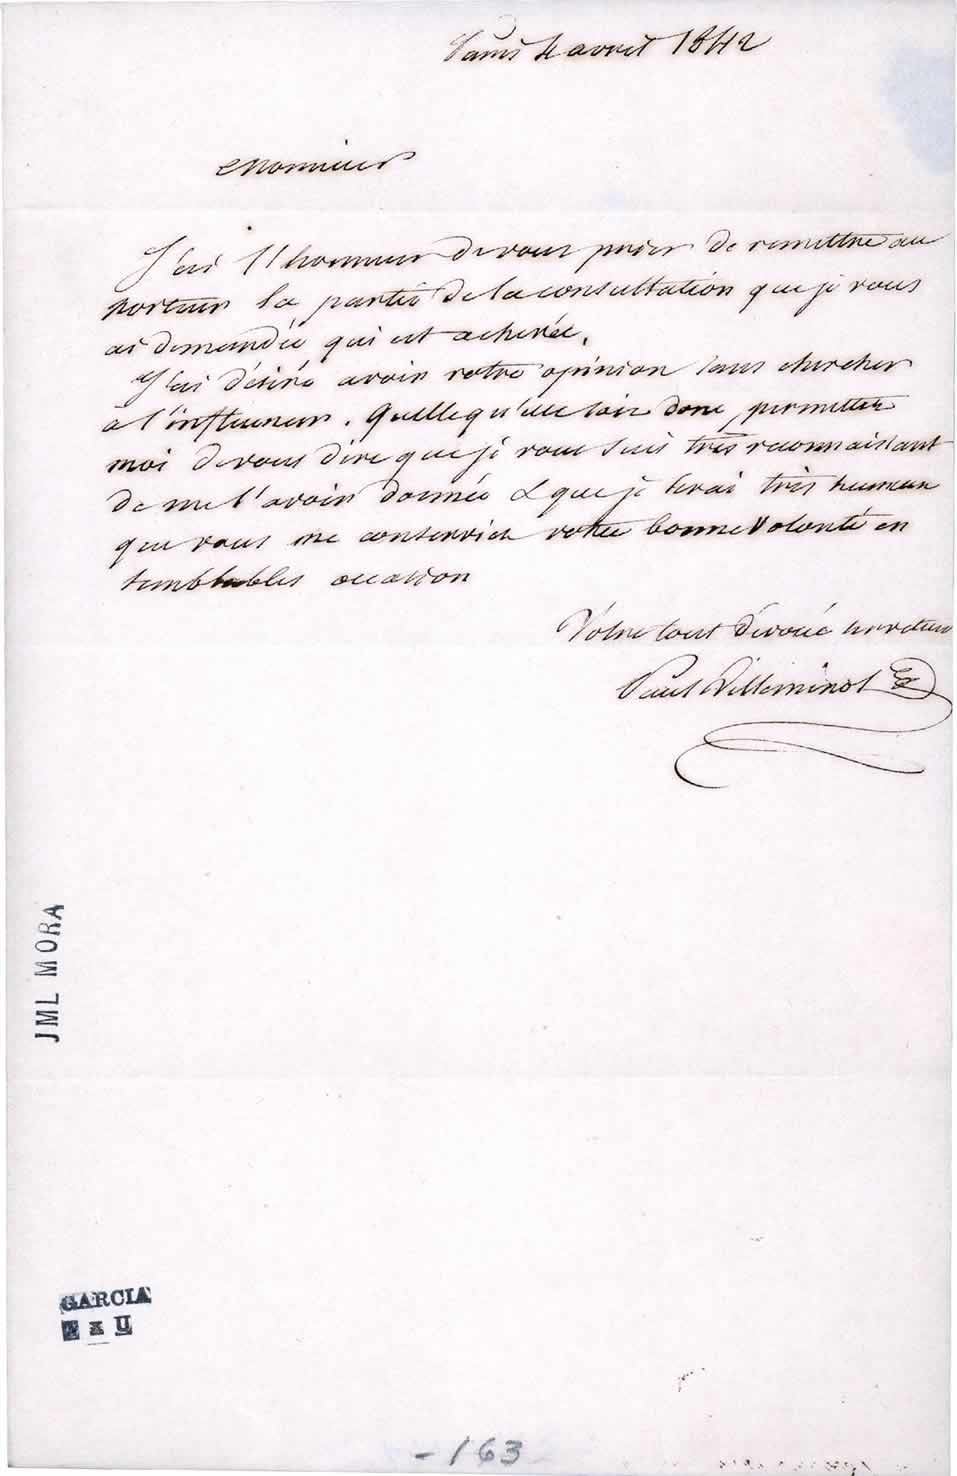 Paris 4 avril 1842
Monsieur
J'ai l'honneur de vous prier de remettre au
porteur la partie de la consultation que je vous
ai demandée qui est achevée.
J'ai désiré avoir votre opinion sans chercher
a l'influencer. Quelle qu'elle soit donc, permettez
moi de vous dire que je vous suis très reconnaissant
de me l'avoir donnée & que je serai très heureux
que vous me conserviez votre bonne Volonté en
semblables occasion
Vôtre tout dévoué serviteur
Paul Villeminot
JML MORA
GARCIA
- 163